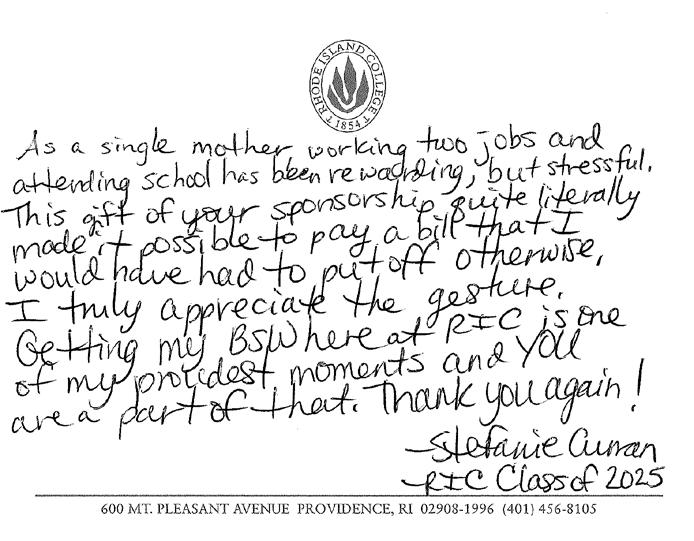 RHODE ISLAND COLLEGE
1854
As a single mother working two jobs and
attending school has been rewarding, but stressful.
This gift of your sponsorship quite literally
made it possible to pay a bill that I
would have had to put off otherwise,
I truly appreciate the gesture.
Getting my BSW here at RIC is one
of my proudest moments and you
are a part of that. Thank you again!
-Stefanie Curran
-RIC Class of 2025
600 MT. PLEASANT AVENUE PROVIDENCE, RI 02908-1996 (401) 456-8105